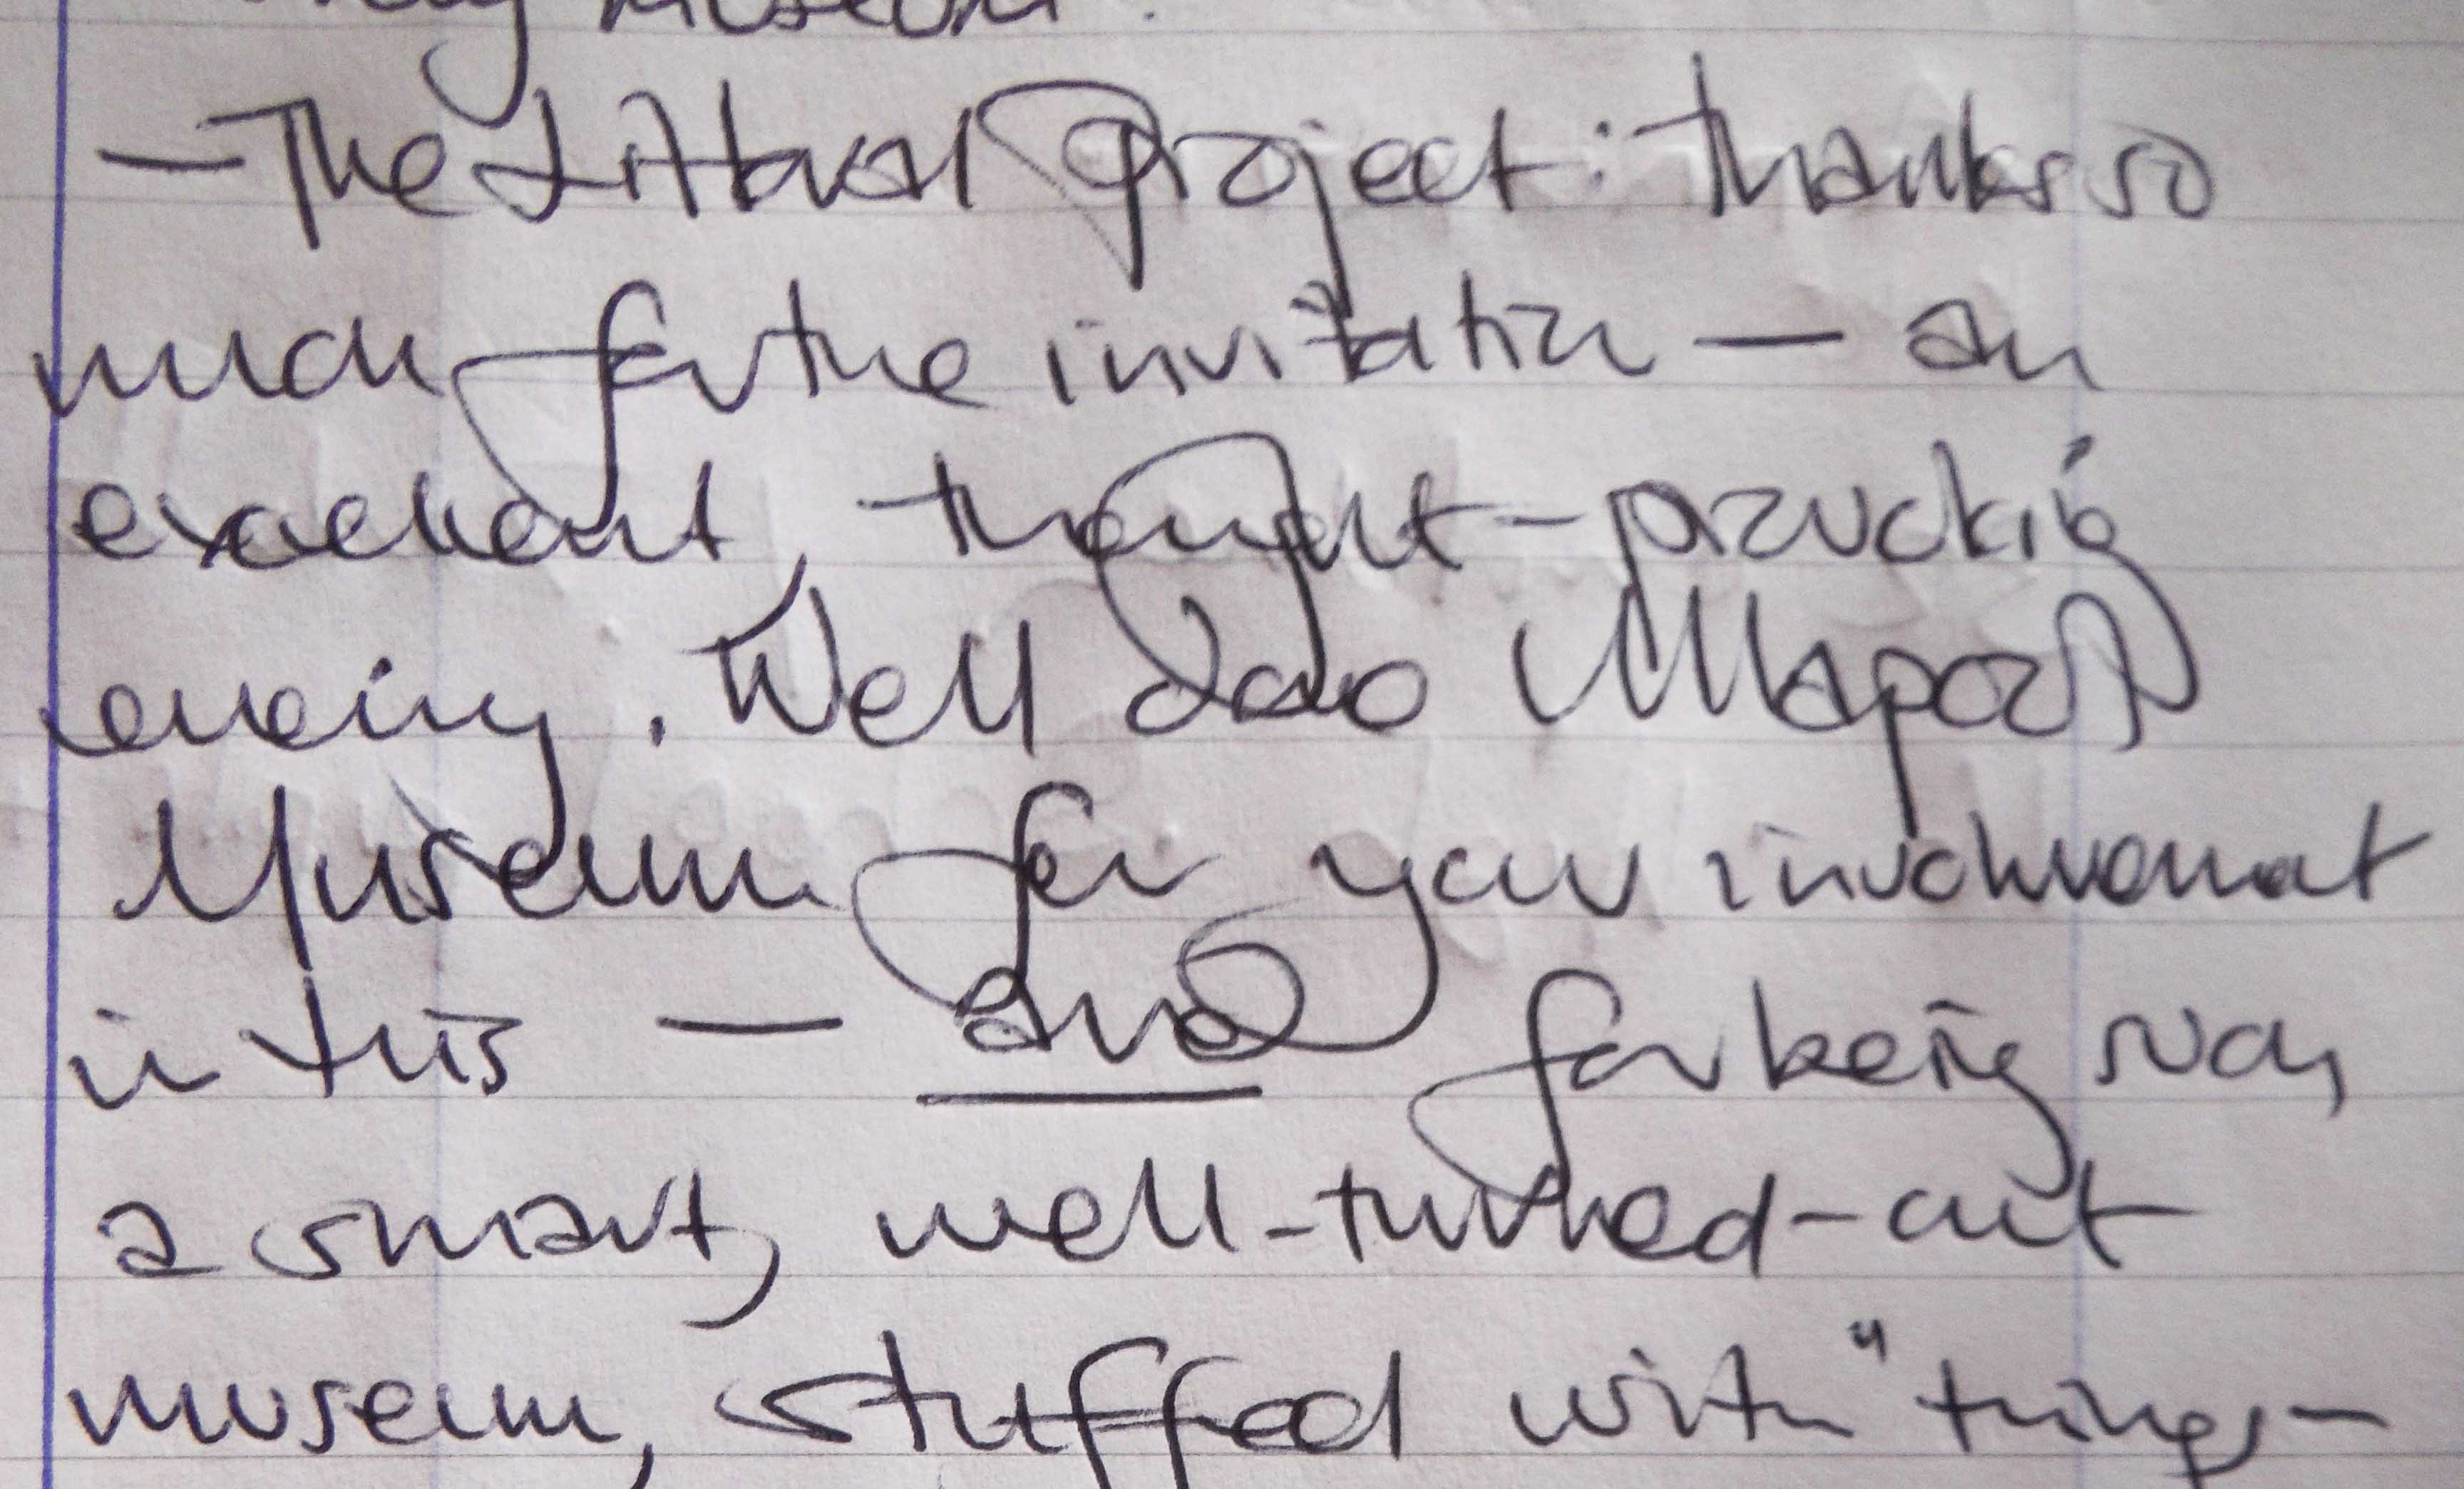 museum.
— The Littoral Project: thanks so
much for the invitation — an
excellent, thought-provoking
evening. Well done Maryport
Museum for your involvement
in this — and for being such
a smart, well-turned-out
museum, stuffed with "things-